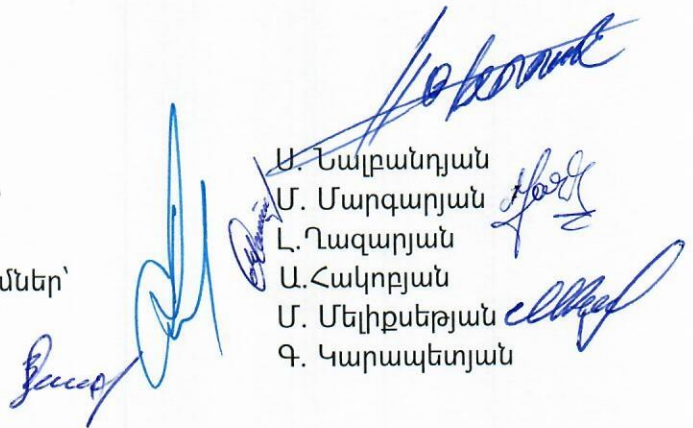 Ս. Նալբանդյան
Մ. Մարգարյան
Լ.Ղազարյան
մներ՝
Ա.Հակոբյան
Մ. Մելիքսեթյան
Գ. Կարապետյան